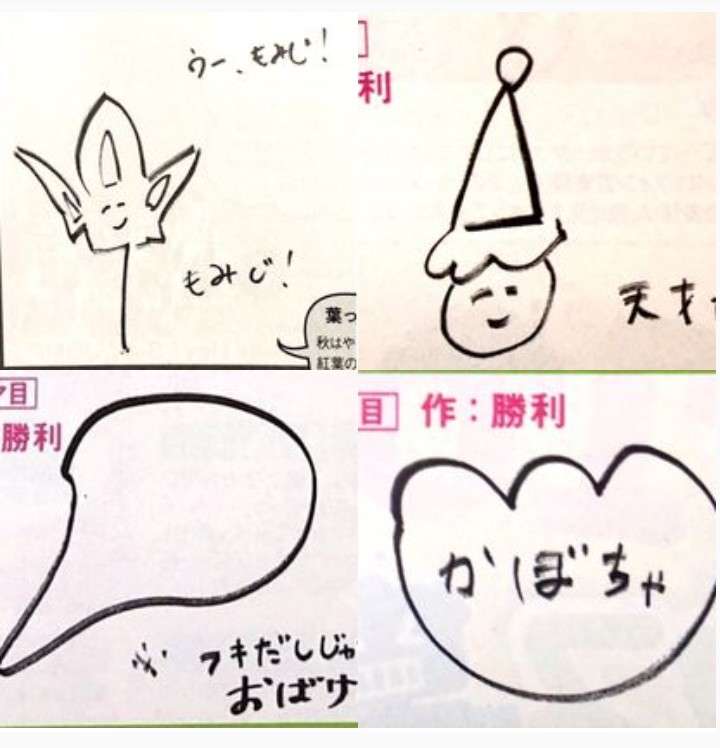 うー、もみじ!
もみじ!
葉っ
秋はや
紅葉の
利
天才
目
勝利
フキだしじゃ
おばけ
目 作：勝利
かぼちゃ